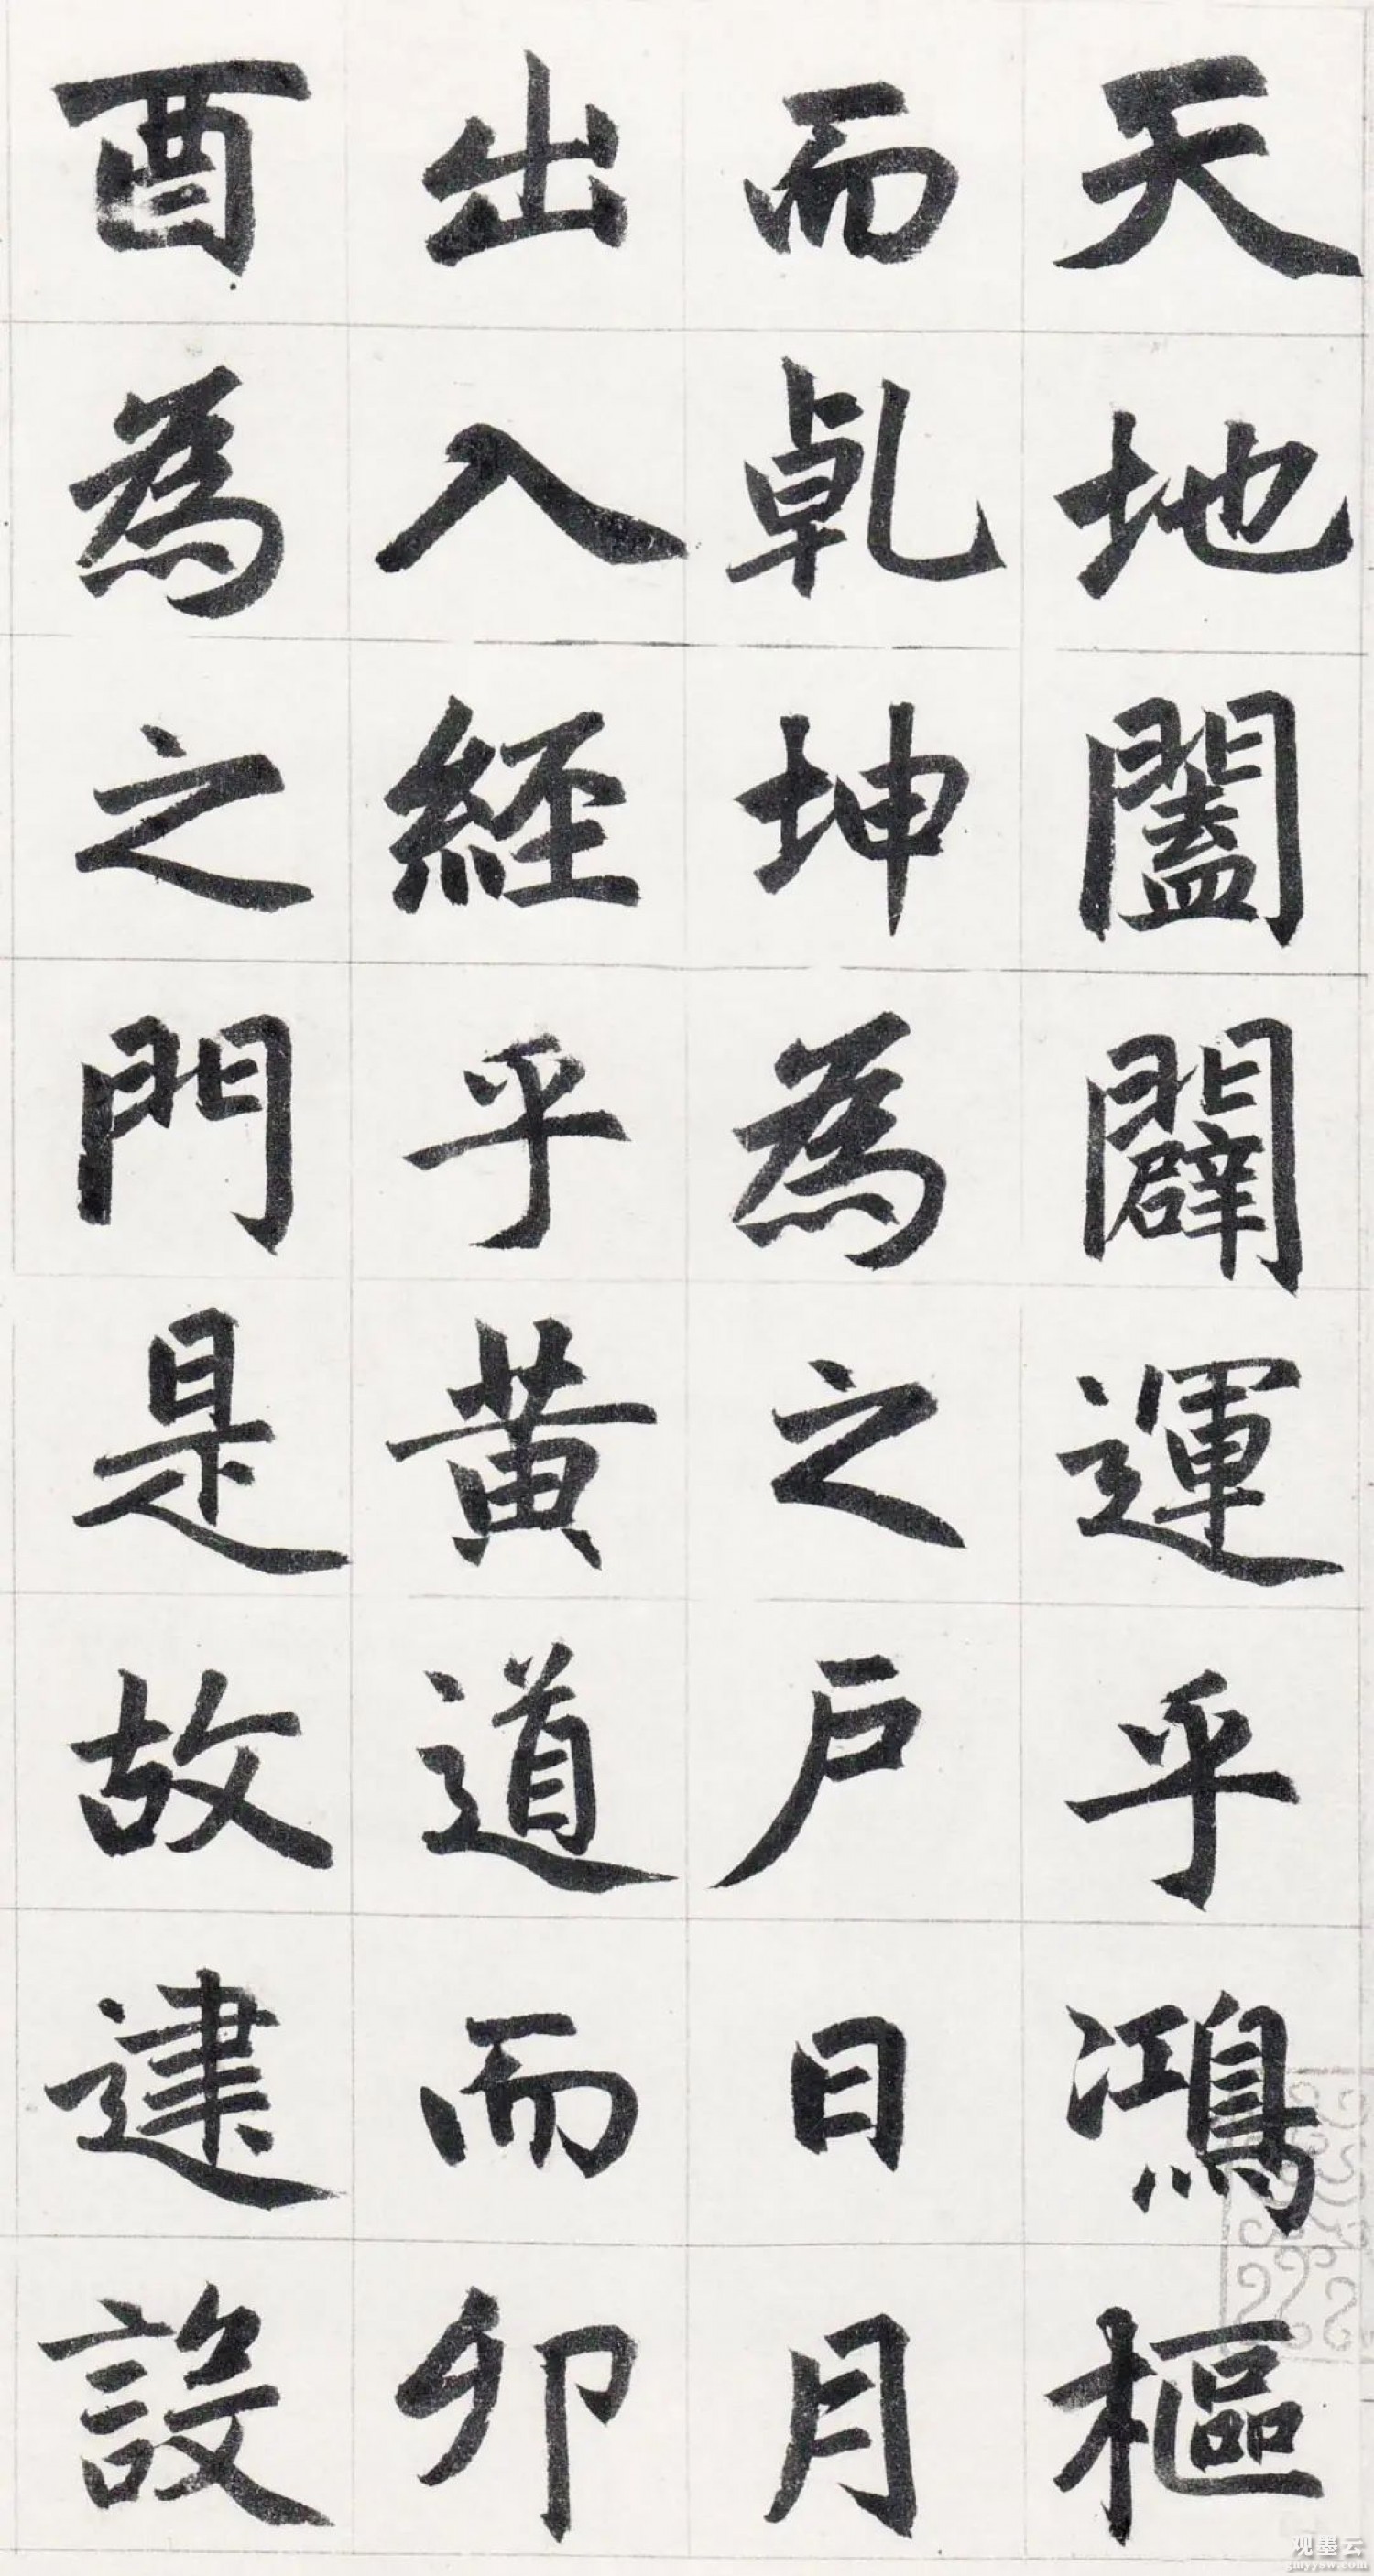 天地闔闢運乎鴻樞
而乹坤為之户日月
出入經乎黃道而卯
酉為之門是故建設
观墨云
gmyysw.com